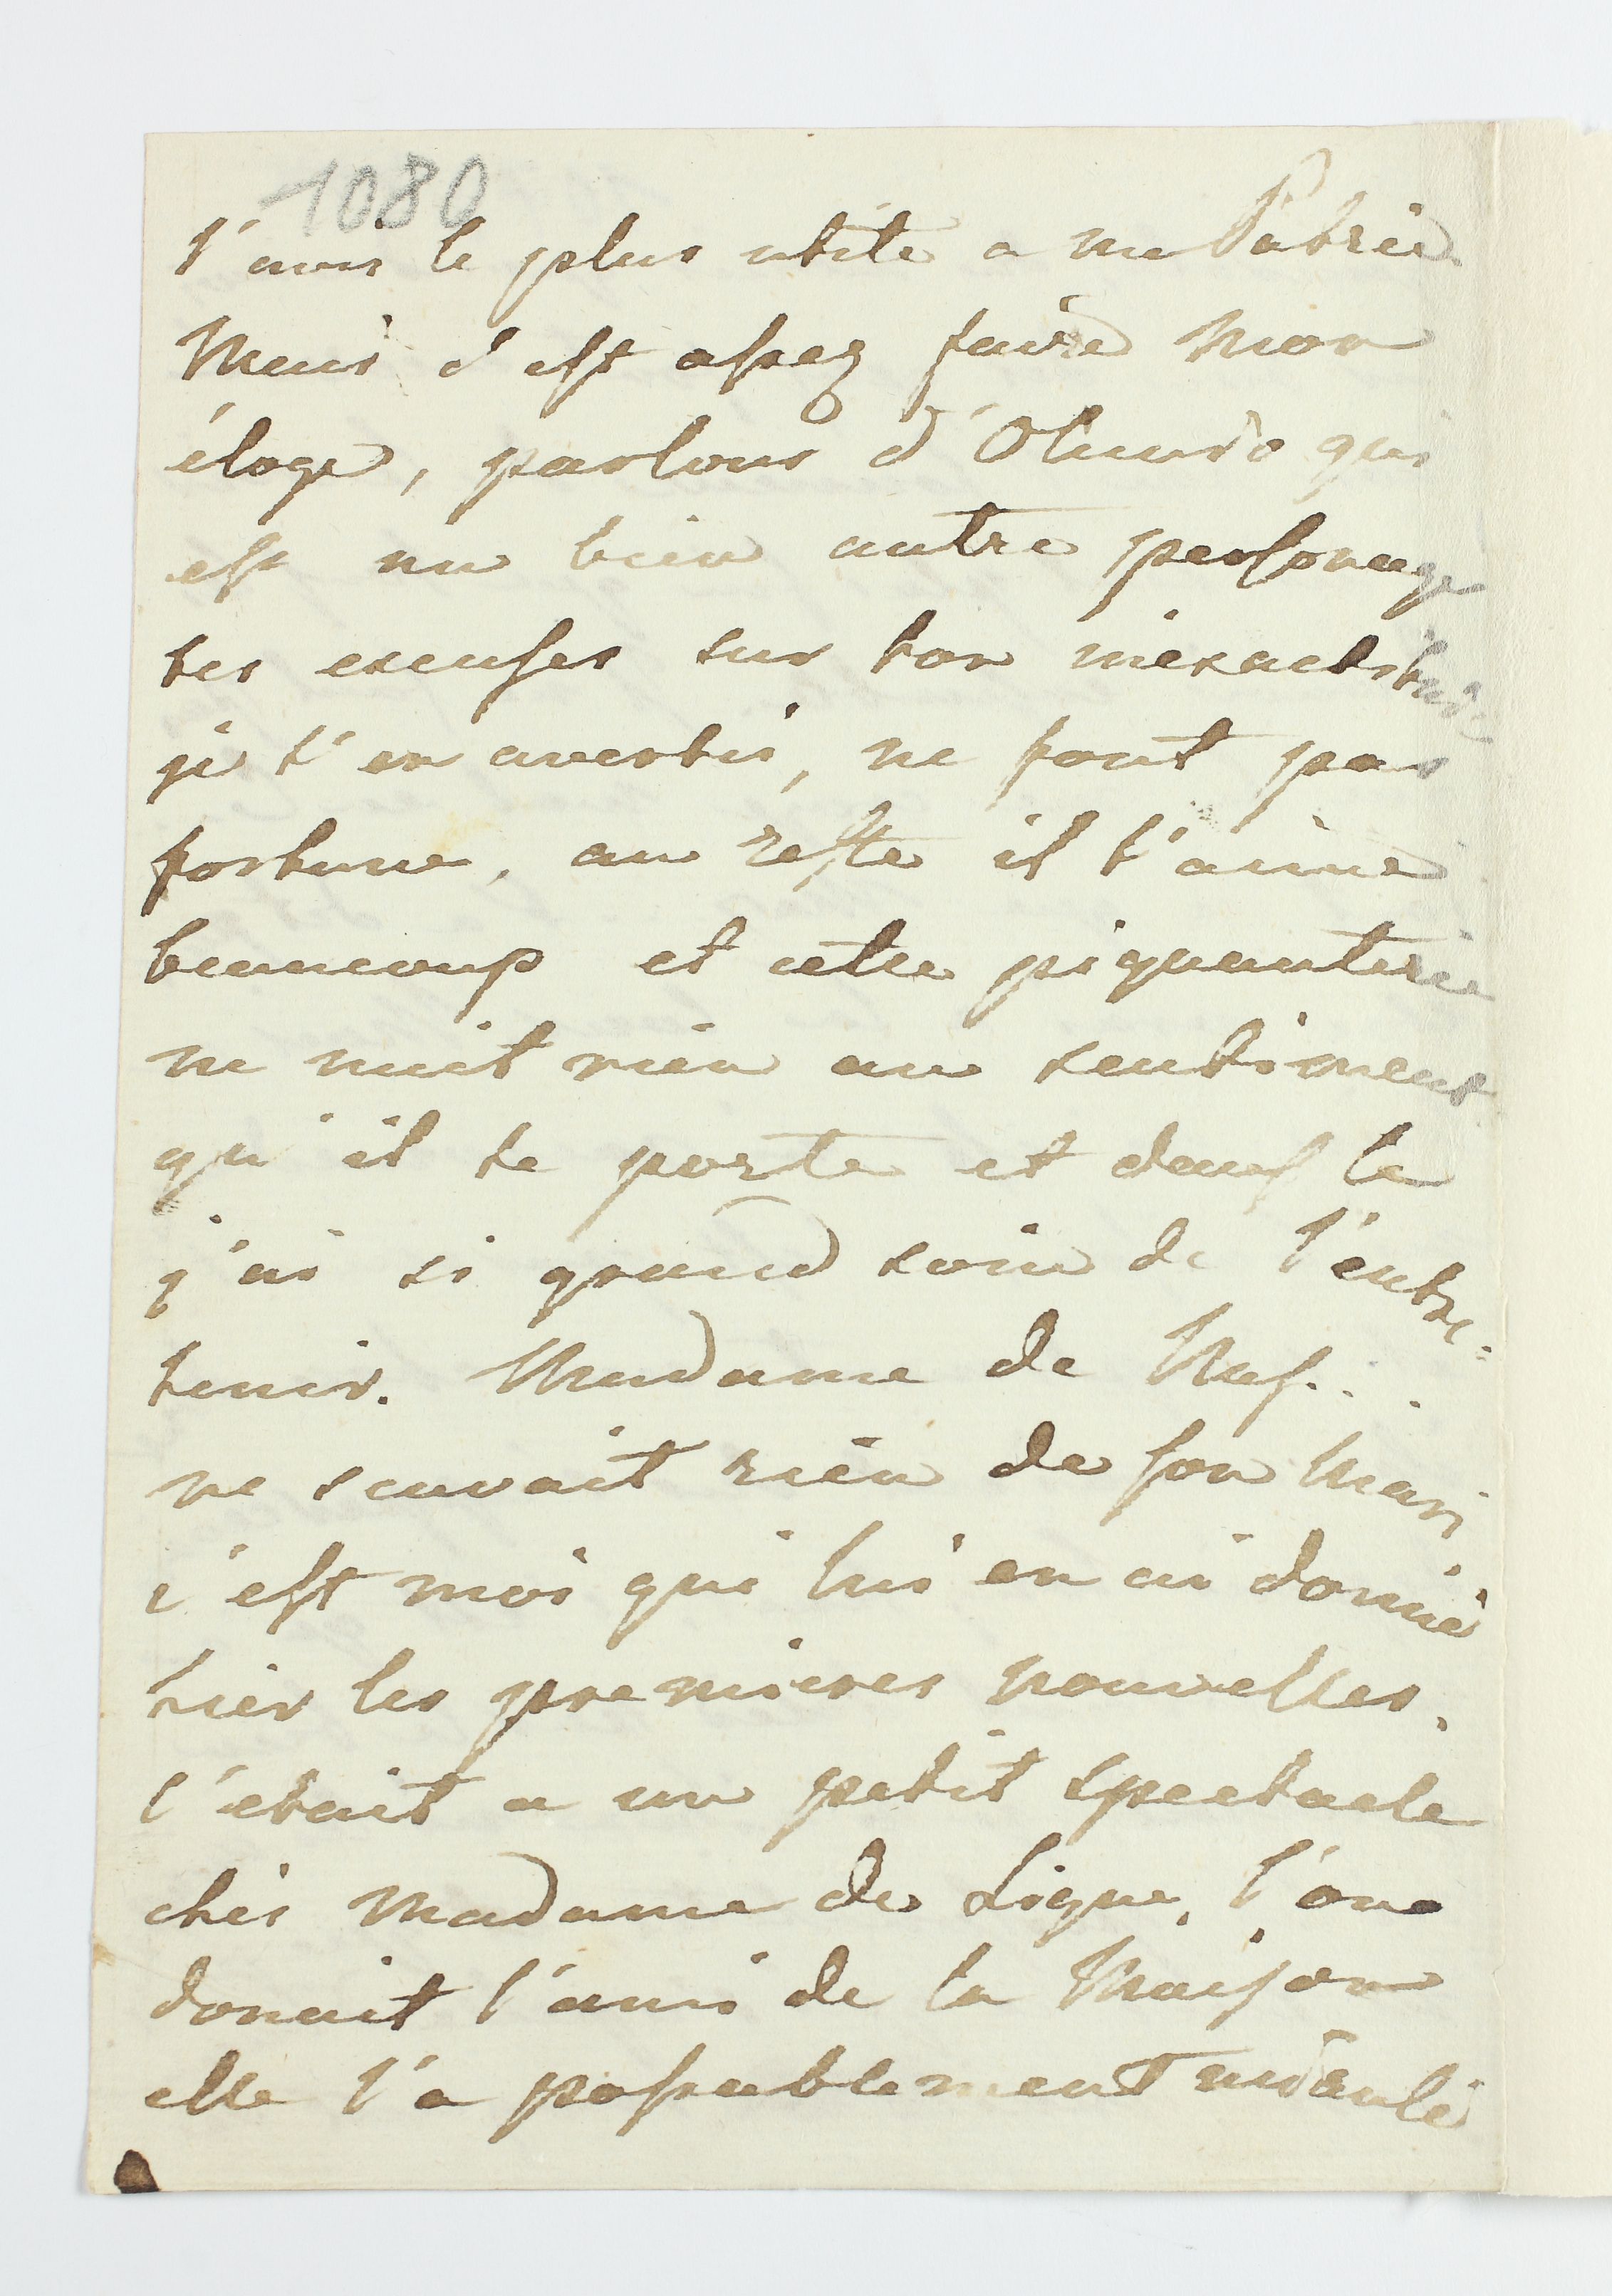 1080
l'avis le plus utile a ma Patrie.
Mais c'est assez faire mon
éloge, parlons d' qui
est un bien autre personage
tes excuses sur ton inexactitude
je t'en avertis, ne font pas
fortune. au reste il t'aime
beaucoup et cette piquanterie
ne nuit rien au sentiment
qu'il te porte et dans le
j'ai si grand soin de l'entre=
tenir. Madame de Nes...
ne scavait rien de son mari
c'est moi qui lui en ai donné
hier les premieres nouvelles.
c'etait a un petit spectacle
chés Madame de Ligne, l'on
donait l'ami de la Maison
elle l'a passablement